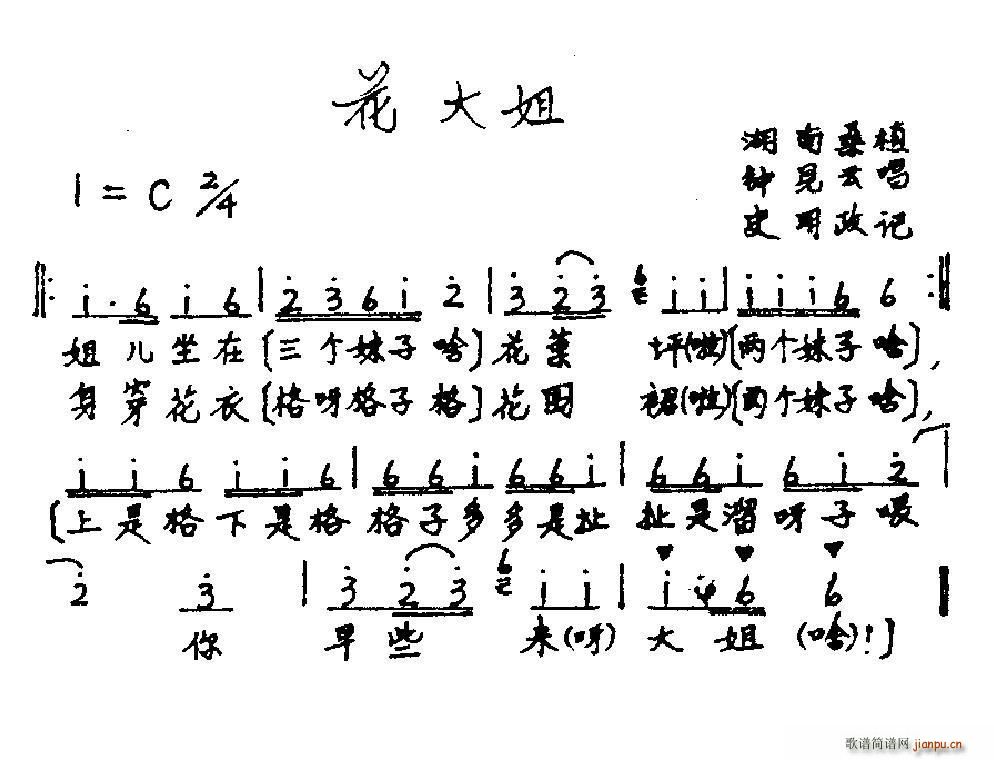 花大姐
湖南桑植
钟昆云唱
史明政记
1=C 2/4
‖: i·6 i 6 | 2 3 6 i 2 | 3 2 3 6 i i | i i i 6 6 :‖
姐儿坐在〔三个妹子啥〕花葉坪(啦)〔两个妹子啥〕,
身穿花衣〔格呀格子格〕花围裙(啦)〔两个妹子啥〕,
i i 6 i i 6 | 6 6 i 6 6 i | 6 6 i 6 i 2 |
〔上是格下是格格子多多是扯扯是溜呀子喂
2 3 | 3 2 3 6 i i | i i 6 6
你早些来(呀)大姐(啥)!〕
歌谱简谱网 jianpu.cn